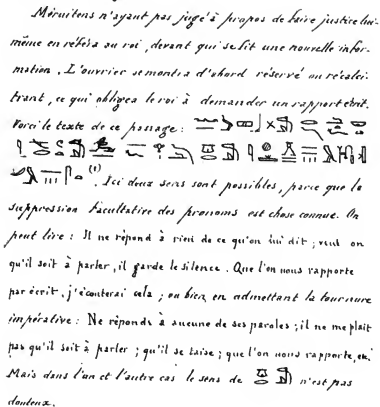 Méruitens n'ayant pas jugé à propos de faire justice lui-
même en référa au roi, devant qui se fit une nouvelle infor-
mation. L'ouvrier se montra d'abord réservé ou récalci-
trant, ce qui obligea le roi à demander un rapport écrit.
Voici le texte de ce passage :
(1). Ici deux sens sont possibles, parce que la
suppression facultative des pronoms est chose connue. On
peut lire : Il ne répond à rien de ce qu'on lui dit ; veut on
qu'il soit à parler, il garde le silence. Que l'on nous rapporte
par écrit, j'écouterai cela ; ou bien, en admettant la tournure
impérative : Ne réponds à aucune de ses paroles ; il ne me plait
pas qu'il soit à parler ; qu'il se taise ; que l'on nous rapporte, etc.
Mais dans l'un et l'autre cas le sens de n'est pas
douteux.